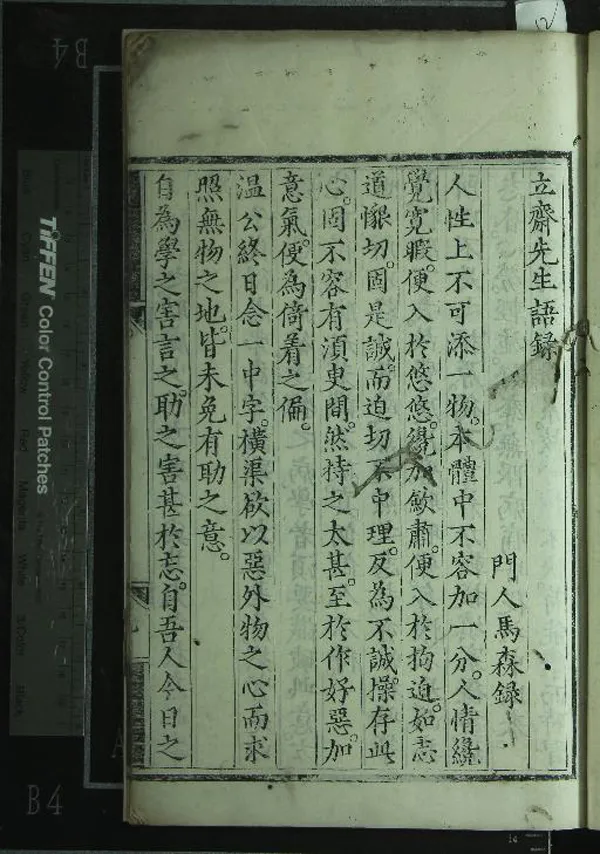 立齋先生語録
門人馬森録
人性上不可添一物。本體中不容加一分。人情纔
覺寬暇。便入於悠悠。纔加歛肅。便入於拘迫。如志
道懇切。固是誠。而迫切不中理。反為不誠。操存此
心。固不容有須臾間。然持之太甚。至於作好惡。加
意氣。便為倚着之偏。
温公終日念一中字。横渠欲以惡外物之心而求
照無物之地。皆未免有助之意。
自為學之害言之。助之害甚於忘。自吾人今日之
TIFFEN Color Control Patches
B4
B4
12